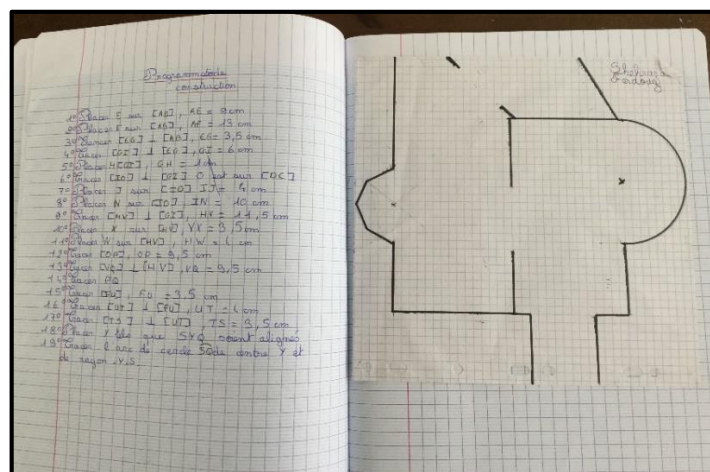 Programme de
construction
1° Placer E sur [AD], AE = 9 cm
2° Placer F sur [AB], AF = 13 cm
3° Tracer [EG] ⊥ [AD], EG = 3,5 cm
4° Tracer [GI] ⊥ [EG], GI = 6 cm
5° Placer H [GI], GH = 1 cm
6° Tracer [IO] ⊥ [GI] O est sur [DC]
7° Placer J sur [IO] IJ = 4 cm
8° Placer N sur [IO], IN = 10 cm
9° Tracer [HV] ⊥ [GI], HV = 11,5 cm
10° Placer X sur [HV], VX = 3,5 cm
11° Placer W sur [HV], HW = 4 cm
12° Tracer [OP], OP = 9,5 cm
13° Tracer [VQ] ⊥ [HV], VQ = 9,5 cm
14° Tracer PQ
15° Tracer [FU], = 3,5 cm
16° Tracer ⊥ [FU], UT = 4 cm
17° Tracer [TS] ⊥ [UT], TS = 9,5 cm
18° Placer Y tels que SYQ soient alignés
19° Tracer l'arc de cercle SQ de centre Y et
de rayon YS